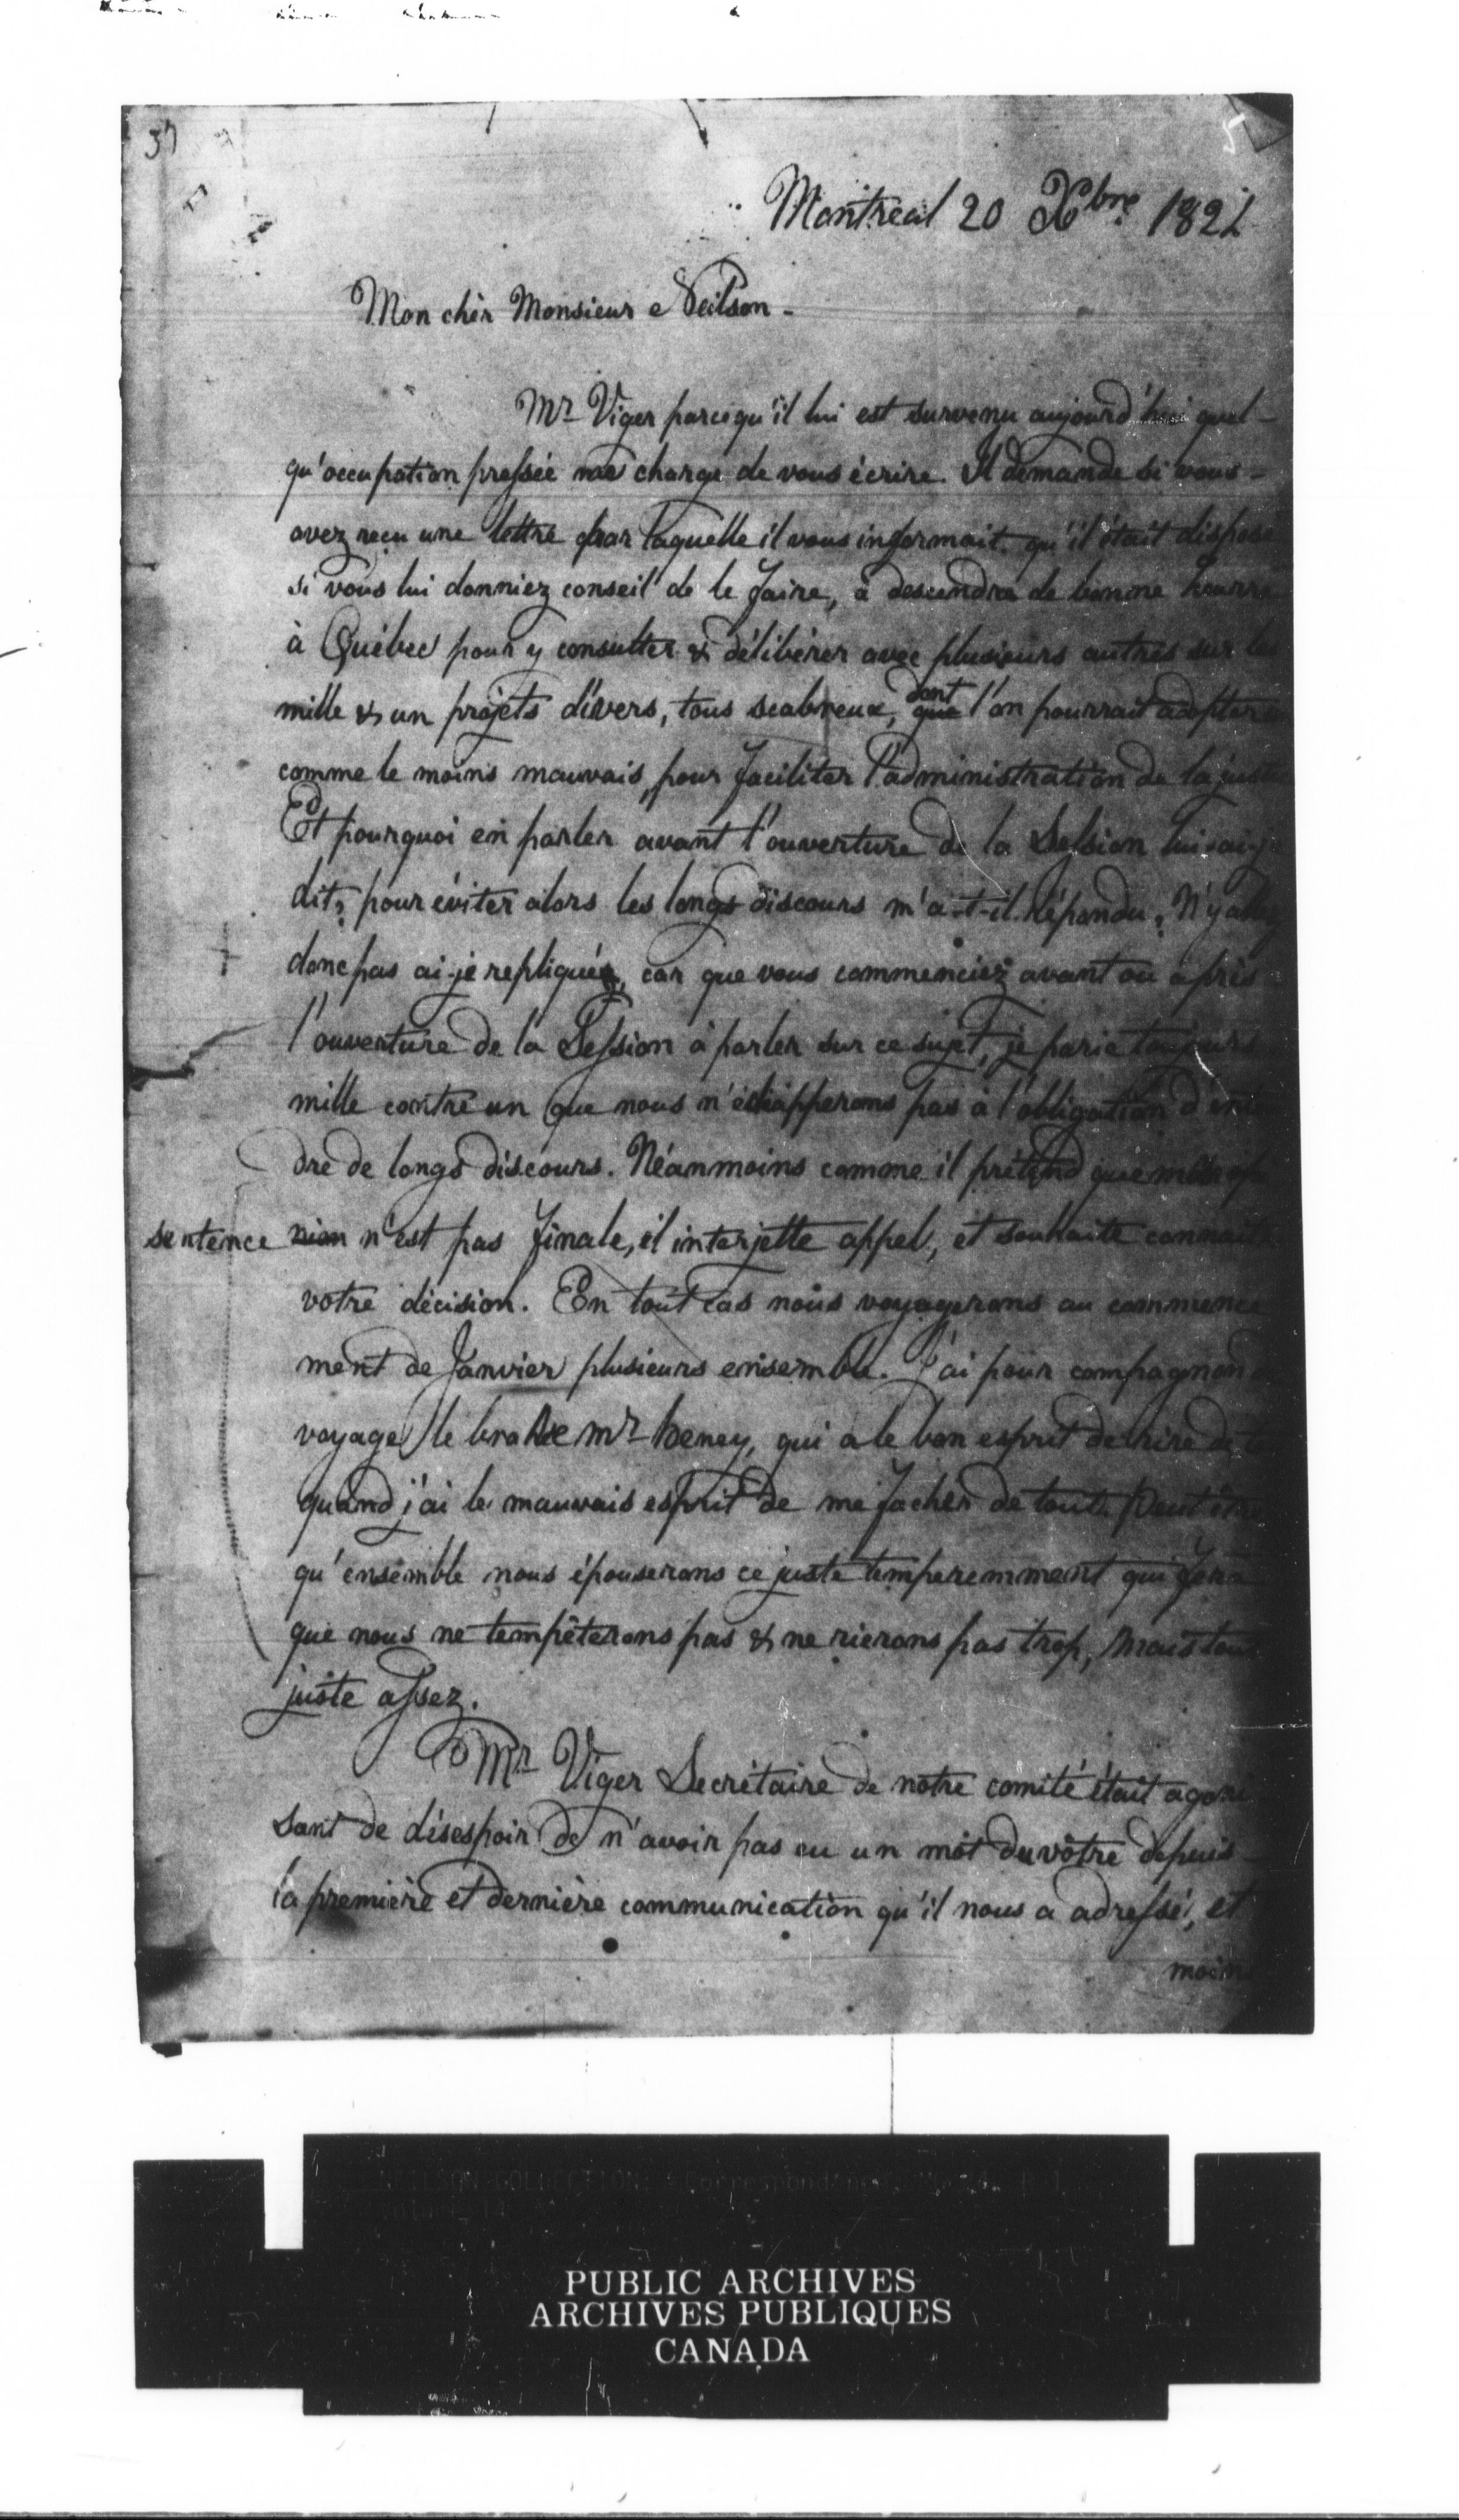 37
5
Montreal 20 Xbre 182
Mon chèr Monsieur Neilson -
Mr Viger parcequ'il lui est survenu aujourd'hui quel-
qu'occupation pressée me charge de vous écrire. Il demande si vous -
avez recu une lettre par laquelle il vous informait qu'il était disposé
si vous lui donniez conseil de le faire, à descendre de bonne heure
à Québec pour y consulter & délibérer avec plusieurs autres sur les
mille & un projets divers, tous scabreux, que dont l'on pourrait adopter
comme le moins mauvais, pour faciliter l'administration de la justice
Et pourquoi en parler avant l'ouverture de la Session lui ai-j
dit? pour éviter alors les longs discours m'a-t-il répondu. N'y allez
donc pas ai-je repliqué, car que vous commenciez avant ou après
l'ouverture de la Session à parler sur ce sujet, je parie toujours
mille contre un que nous n'échapperons pas à l'obligation d'en
dre de longs discours. Néanmoins comme il prétend que
sentence nion n'est pas finale, il interjette appel, et souhaite connait
votre décision. En tout cas nous voyagerons au commence
ment de Janvier plusieurs ensemble. J'ai pour compagnon
voyage le brave mr heney, qui a le bon esprit de rire de
quand j'ai le mauvais esprit de me facher de tout. Peut être
qu'ensemble nous épouserons ce juste temperemment qui fera
que nous ne tempêterons pas & ne rierons pas trop, mais tout
juste assez.
Mr Viger Secrétaire de notre comité était agoni
sant de désespoir de n'avoir pas eu un mot du vôtre depuis -
la première et dernière communication qu'il nous a adressé, et
moins
PUBLIC ARCHIVES
ARCHIVES PUBLIQUES
CANADA